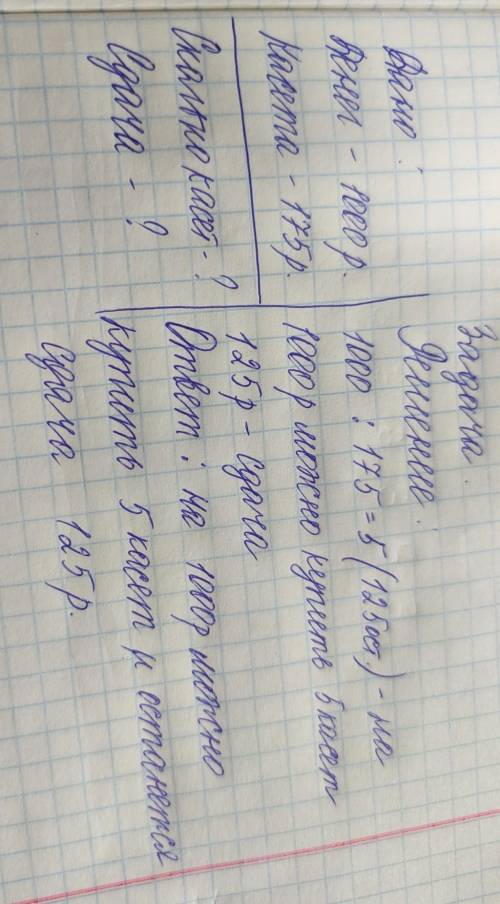 Задача
Дано:
Денег - 1000 р.
Касета - 175 р.
Сколько касет - ?
Сдача - ?
Решение:
1000 : 175 = 5 (125 ост.) - на
1000 р можно купить 5 касет
125 р - сдача
Ответ: на 1000р можно
купить 5 касет и останется
сдача 125 р.